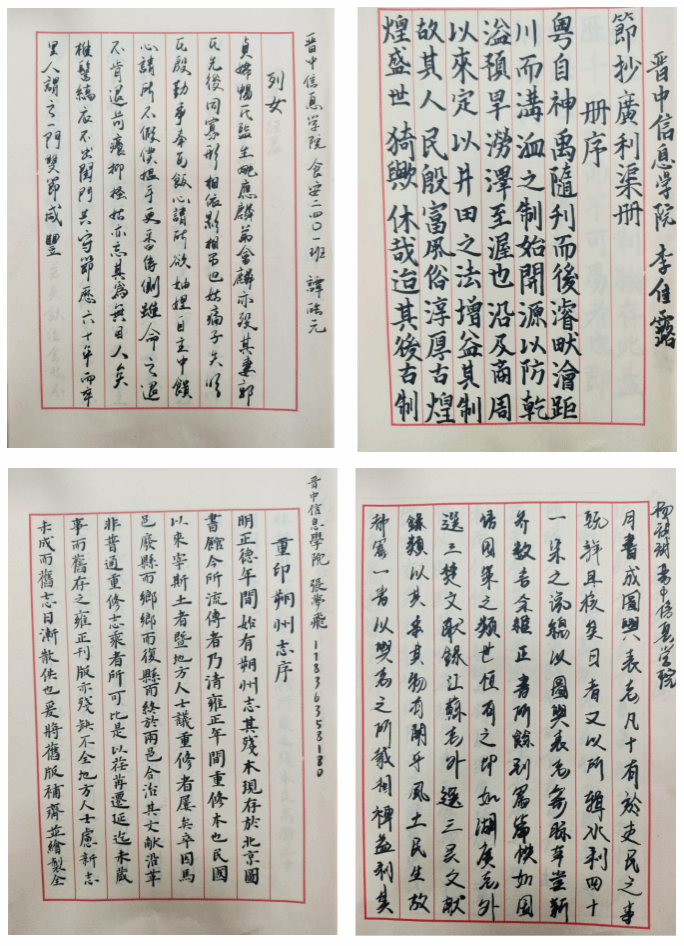 晋中信息学院 食安二四〇一班
列女
貞婦楊氏監生
氏先後同寡形相依影相弔也姑痛子失明
氏殷勤事奉每飯心請所欲妯娌自主中饋
心請所不假僕搵手更番侍側雖命之退
不肯退苛癢抑搔姑亦忘其為無目人矣
椎髻縞衣不出閨門共守節歷六十年而卒
里人謂之一門雙節咸豐
晋中信息学院 李佳露
節抄廣利渠册
册序
粵自神禹隨刋而後濬畎澮距
川而溝洫之制始開源以防乾
溢預旱澇澤至渥也沿及商周
以來定以井田之法增益其制
故其人民殷富風俗淳厚古煌
煌盛世猗歟休哉迨其後古制
晋中信息學院 張夢飛 11836353180
重印朔州志序
明正德年間始有朔州志其殘本現存於北京圖
書館今所流傳者乃清雍正年間重修本也民國
以來宰斯土者暨地方人士議重修者屢矣卒因馬
邑廢縣而鄉鄉而復縣而終於兩邑合治其文獻沿革
非普通重修志乘者所可比是以荏苒遷延迄未蕆
事而舊存之雍正刊版亦殘缺不全地方人士慮新志
未成而舊志日漸散佚也爰將舊版補齊並繪製全
晋中信息学院
月書成圖與表志凡十有於吏民之事
既詳且核矣日者又以所輯水利四十
一渠之流編以圖與表志
界敬告余維正書所餘別為篇帙如國
語國策之類世恒有之即如湖廣志外
選三楚文献録江蘇志外選三吴文献
録類以其系其物有關乎風土民生故
神寄一書以與志之所載相裨益利其